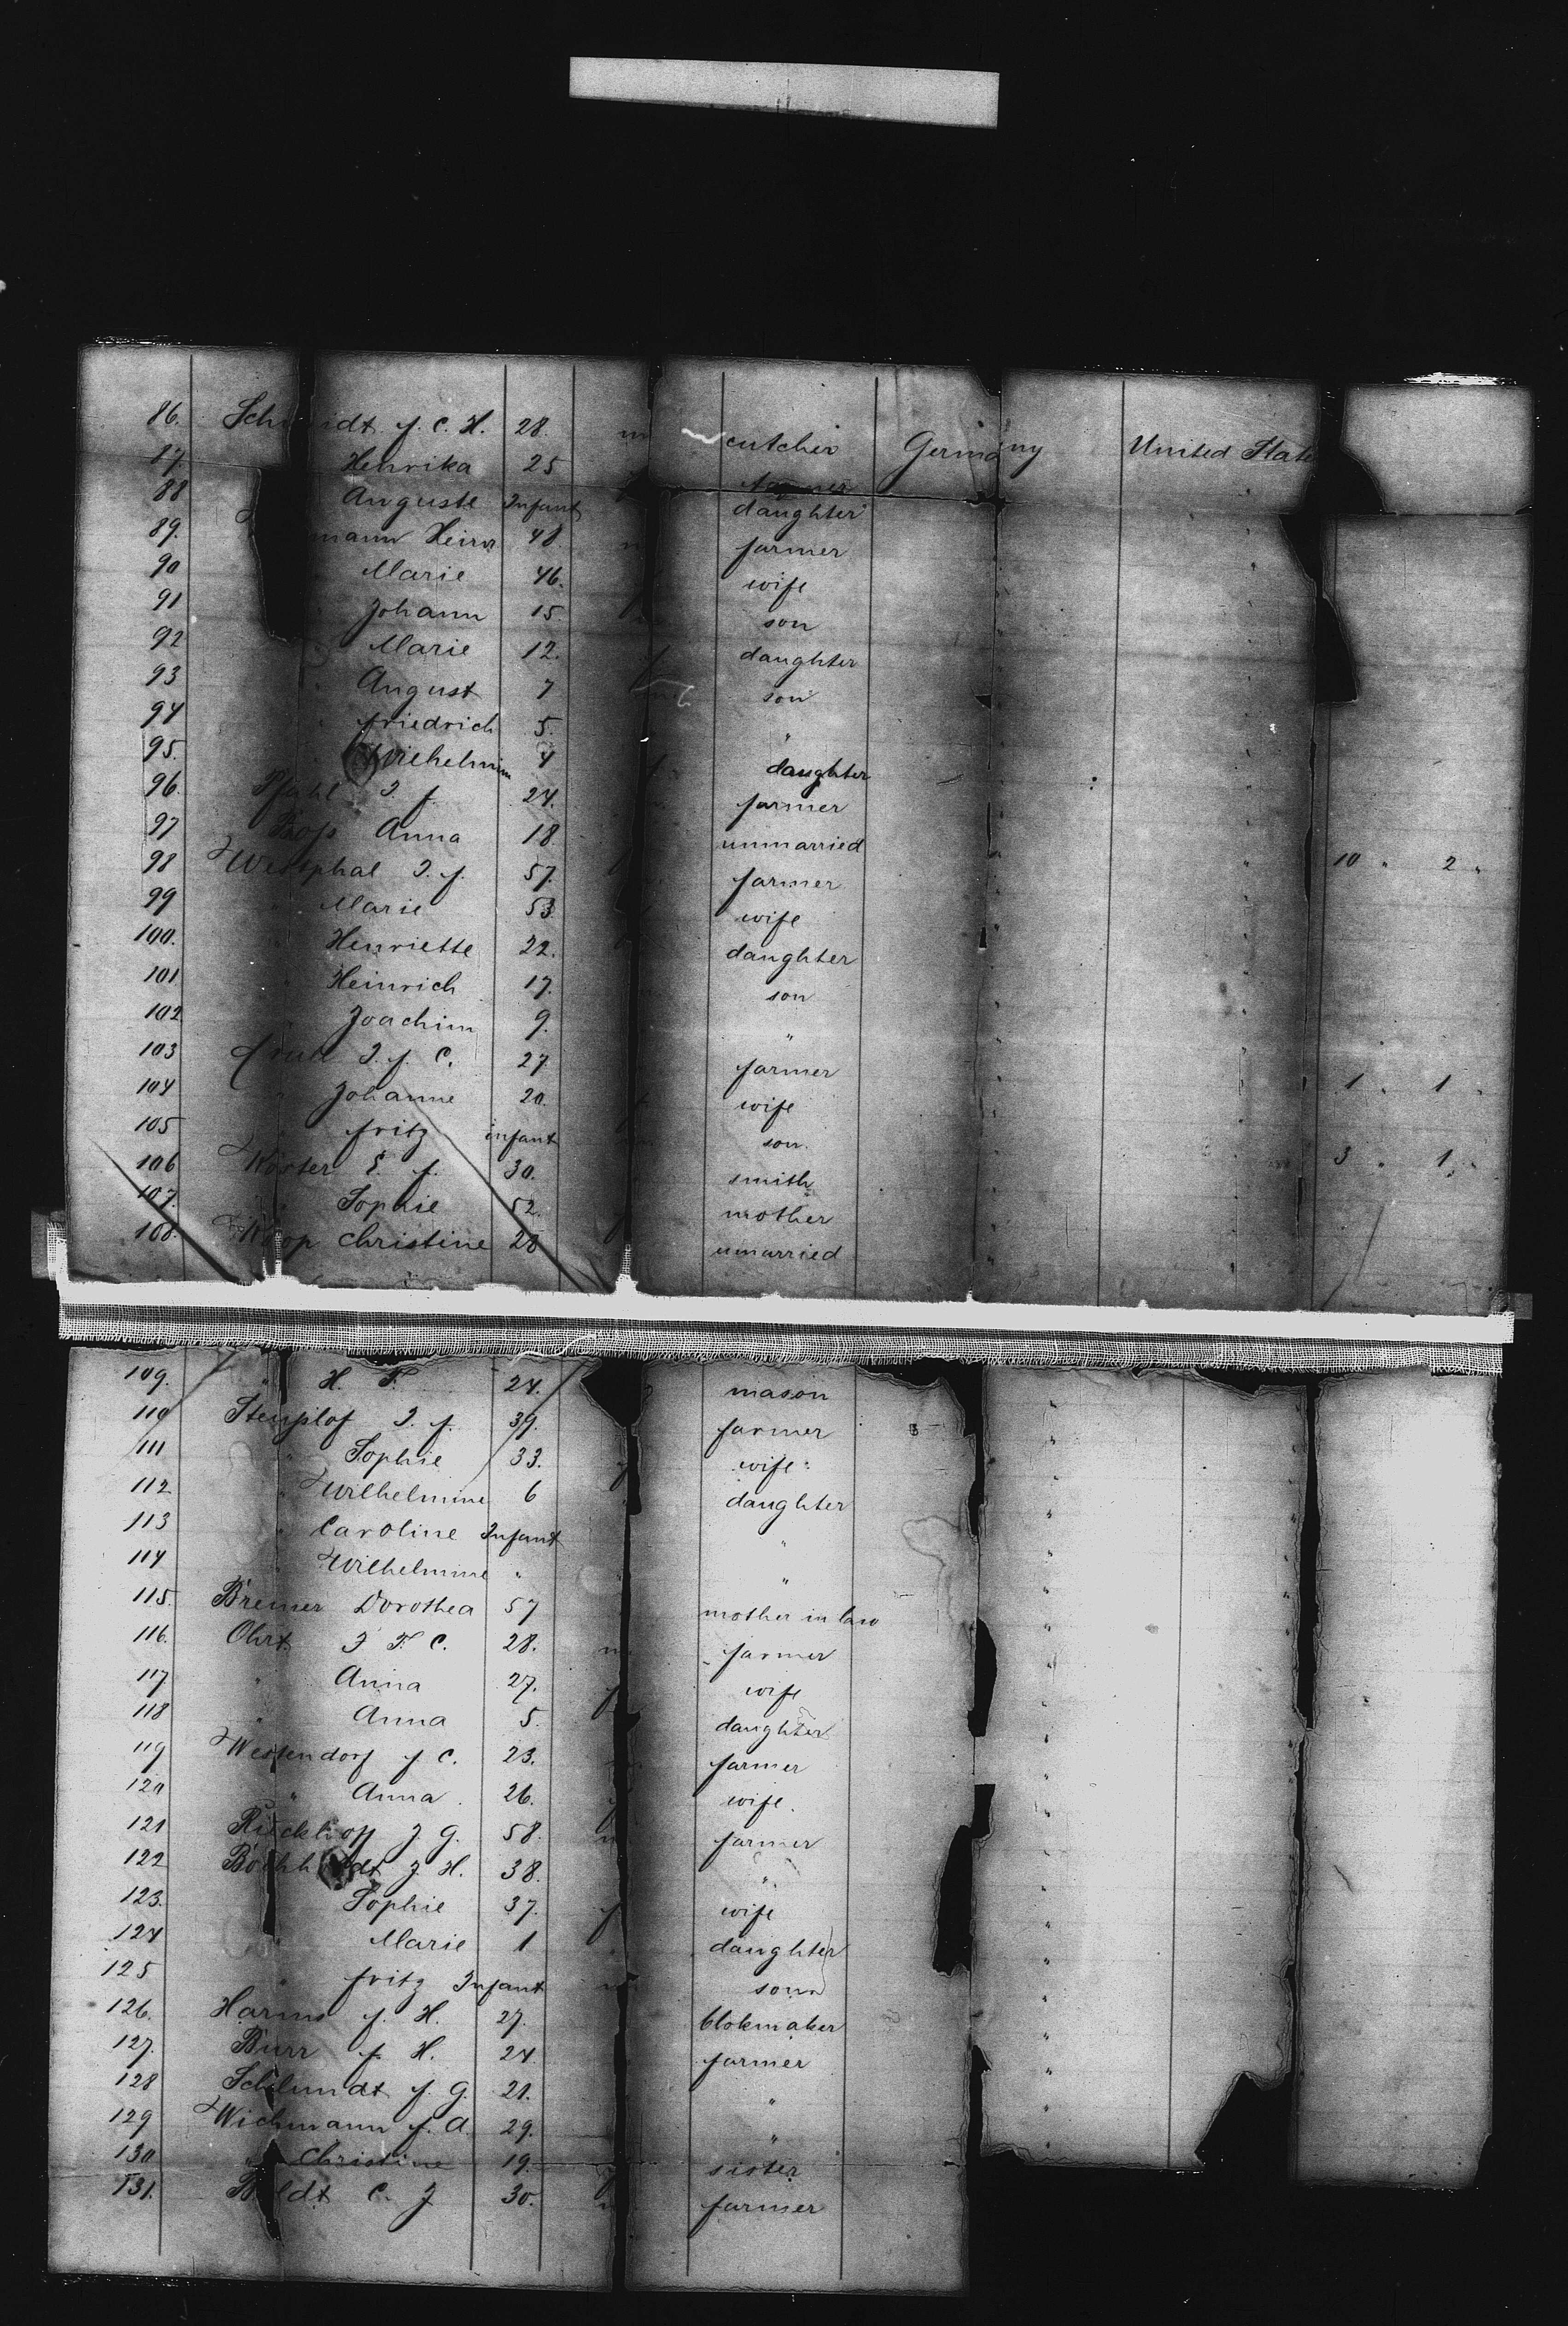 86. Schmidt f. C. H. 28. m cutcher Germany United State
87. Henrika 25
88 Auguste Infant daughter
89. mann Heinr 48. m farmer
90 Marie 46. wife
91 Johann 15. son
92 Marie 12. f daughter
93 " August 7 son
94 " Friedrich 5. "
95. " Wilhelmin 4 f daughter
96. Pfahl J. f. 24. farmer
97 Anna 18 unmarried
98 Westphal J. f. 57. farmer 10 " 2 "
99 " Marie 53 wife
100. " Henriette 22. daughter
101 " Heinrich 17. son
102 " Joachim 9. "
103 J. f. C. 27 farmer 1 " 1 "
104 " Johanne 20. wife
105 " Fritz infant son.
106 Köster E. f. 30. smith 3 " 1 "
107. " Sophie 52. mother
108. Koop Christine 28 unarried
109. " H. F. 24. mason
110 J. f. 39. farmer
111 " Sophie 33. wife
112 " Wilhelmine 6 daughter
113 " Caroline Infant "
114 " Wilhelmine " "
115. Bremer Dorothea 57 mother in law
116. Ohrt J F. C. 28. m farmer
117 " Anna 27. f wife
118 " Anna 5. daughter
119 Westendorf f C. 23. farmer
120 " Anna 26. wife.
121 Rieckhoff J. G. 58. m farmer
122 dt J. H. 38. "
123. Sophie 37. f wife
124 " Marie 1 daughter
125 " Fritz Infant m sonn
126. Harms f. H. 27. blokmaker
127. Burr f. H. 24. farmer
128 Schlundt f G. 21. "
129 Wichmann f. A. 29. "
130 " Christine 19. f sister
131. B ldt C. J 30. m farmer